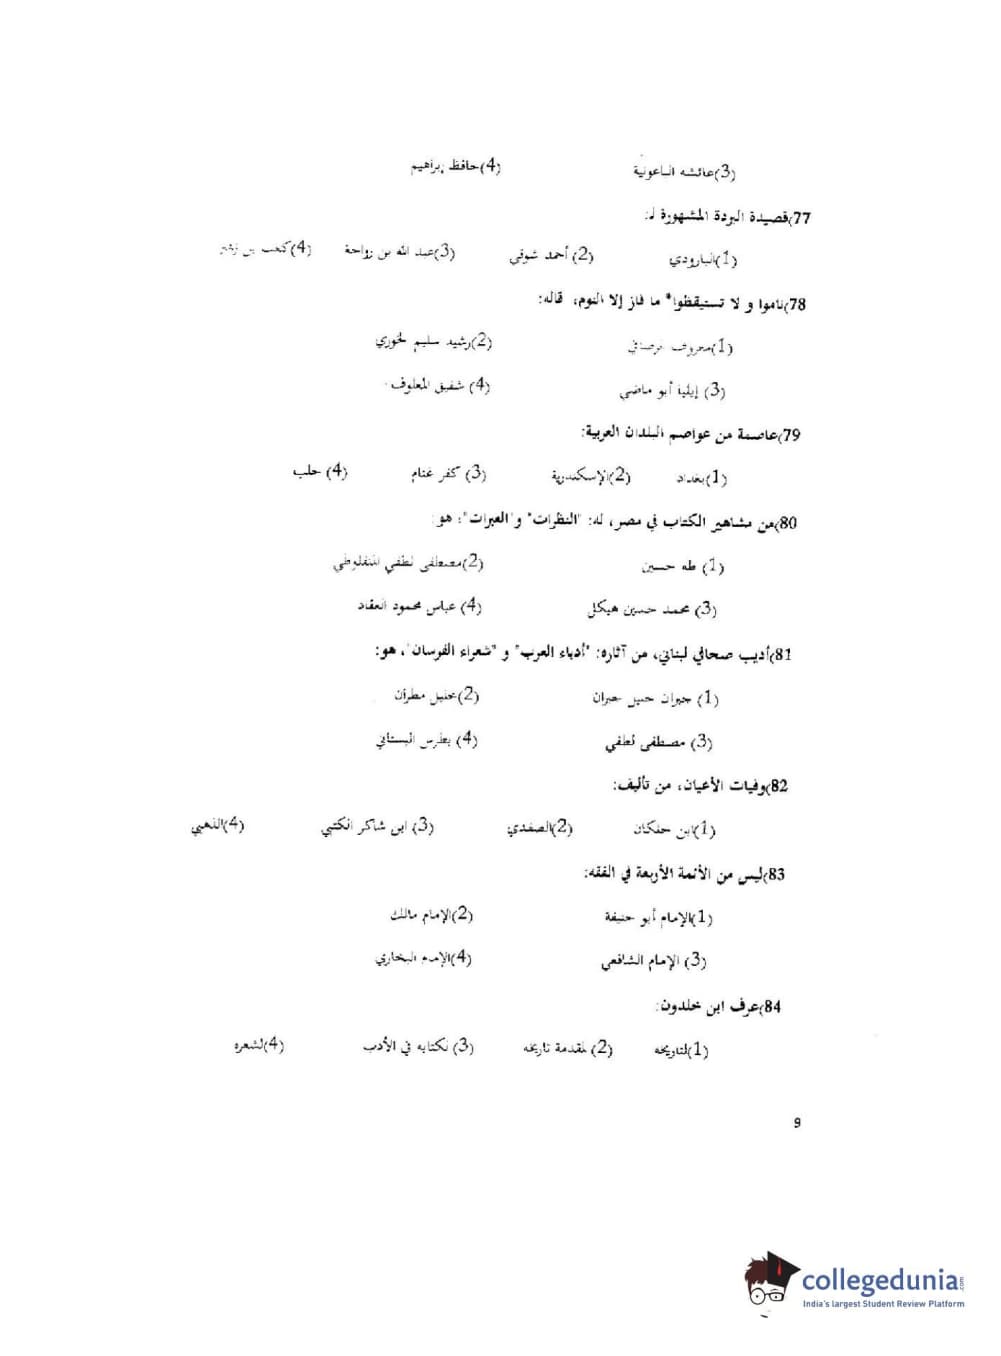 (3)عائشه الباعونية (4)حافظ إبراهيم
77)قصيدة البردة المشهورة لـ:
(1)البارودي (2) أحمد شوقي (3)عبد الله بن رواحة (4)كعب بن زهير
78)ناموا و لا تستيقظوا* ما فاز إلا النوم، قاله:
(1)معروف الرصافي (2)رشيد سليم الخوري
(3) إيليا أبو ماضي (4) شفيق المعلوف
79)عاصمة من عواصم البلدان العربية:
(1)بغداد (2)الإسكندرية (3) كفر غنام (4) حلب
80)من مشاهير الكتاب في مصر، له: "النظرات" و"العبرات"، هو:
(1) طه حسين (2)مصطفى لطفي المنفلوطي
(3) محمد حسين هيكل (4) عباس محمود العقاد
81)أديب صحافي لبناني، من آثاره: "أدباء العرب" و "شعراء الفرسان"، هو:
(1) جبران خليل جبران (2)خليل مطران
(3) مصطفى لطفي (4) بطرس البستاني
82)وفيات الأعيان، من تأليف:
(1)ابن خلكان (2)الصفدي (3) ابن شاكر الكتبي (4)الذهبي
83)ليس من الأئمة الأربعة في الفقه:
(1)الإمام أبو حنيفة (2)الإمام مالك
(3) الإمام الشافعي (4)الإمام البخاري
84)عرف ابن خلدون:
(1)لتاريخه (2) لمقدمة تاريخه (3) لكتابه في الأدب (4)لشعره
9
collegedunia.com
India's largest Student Review Platform